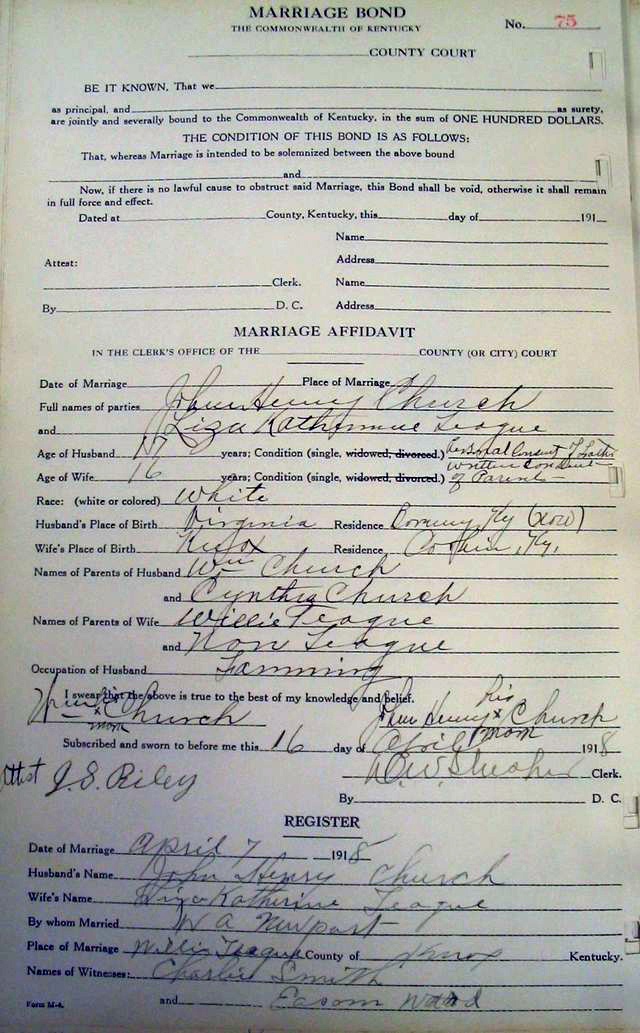 MARRIAGE BOND
THE COMMONWEALTH OF KENTUCKY
No. 75
COUNTY COURT
BE IT KNOWN, That we
as principal, and as surety,
are jointly and severally bound to the Commonwealth of Kentucky, in the sum of ONE HUNDRED DOLLARS.
THE CONDITION OF THIS BOND IS AS FOLLOWS:
That, whereas Marriage is intended to be solemnized between the above bound
and
Now, if there is no lawful cause to obstruct said Marriage, this Bond shall be void, otherwise it shall remain
in full force and effect.
Dated at County, Kentucky, this day of 191
Name
Attest: Address
Clerk. Name
By D. C. Address
MARRIAGE AFFIDAVIT
IN THE CLERK'S OFFICE OF THE COUNTY (OR CITY) COURT
Date of Marriage Place of Marriage
Full names of parties John Henry Church
and Liza Katherine Teague
Age of Husband 17 years; Condition (single, widowed, divorced.) Personal Consent of Father
Age of Wife 16 years; Condition (single, widowed, divorced.) written consent of Parents
Race: (white or colored) White
Husband's Place of Birth Virginia Residence Ky
Wife's Place of Birth Knox Residence Corbin, Ky.
Names of Parents of Husband Wm Church
and Cynthia Church
Names of Parents of Wife Willie Teague
and Non Teague
Occupation of Husband Farming
I swear that the above is true to the best of my knowledge and belief.
Wm his x mark Church John Henry his x mark Church
Subscribed and sworn to before me this 16 day of April 1918
Attest J. S. Riley Clerk.
By D. C.
REGISTER
Date of Marriage April 7 1918
Husband's Name John Henry Church
Wife's Name Liza Katherine Teague
By whom Married W A Newport
Place of Marriage Willie Teague County of Knox Kentucky.
Names of Witnesses: Charlie Smith
and Easom Ward
Form M-4.